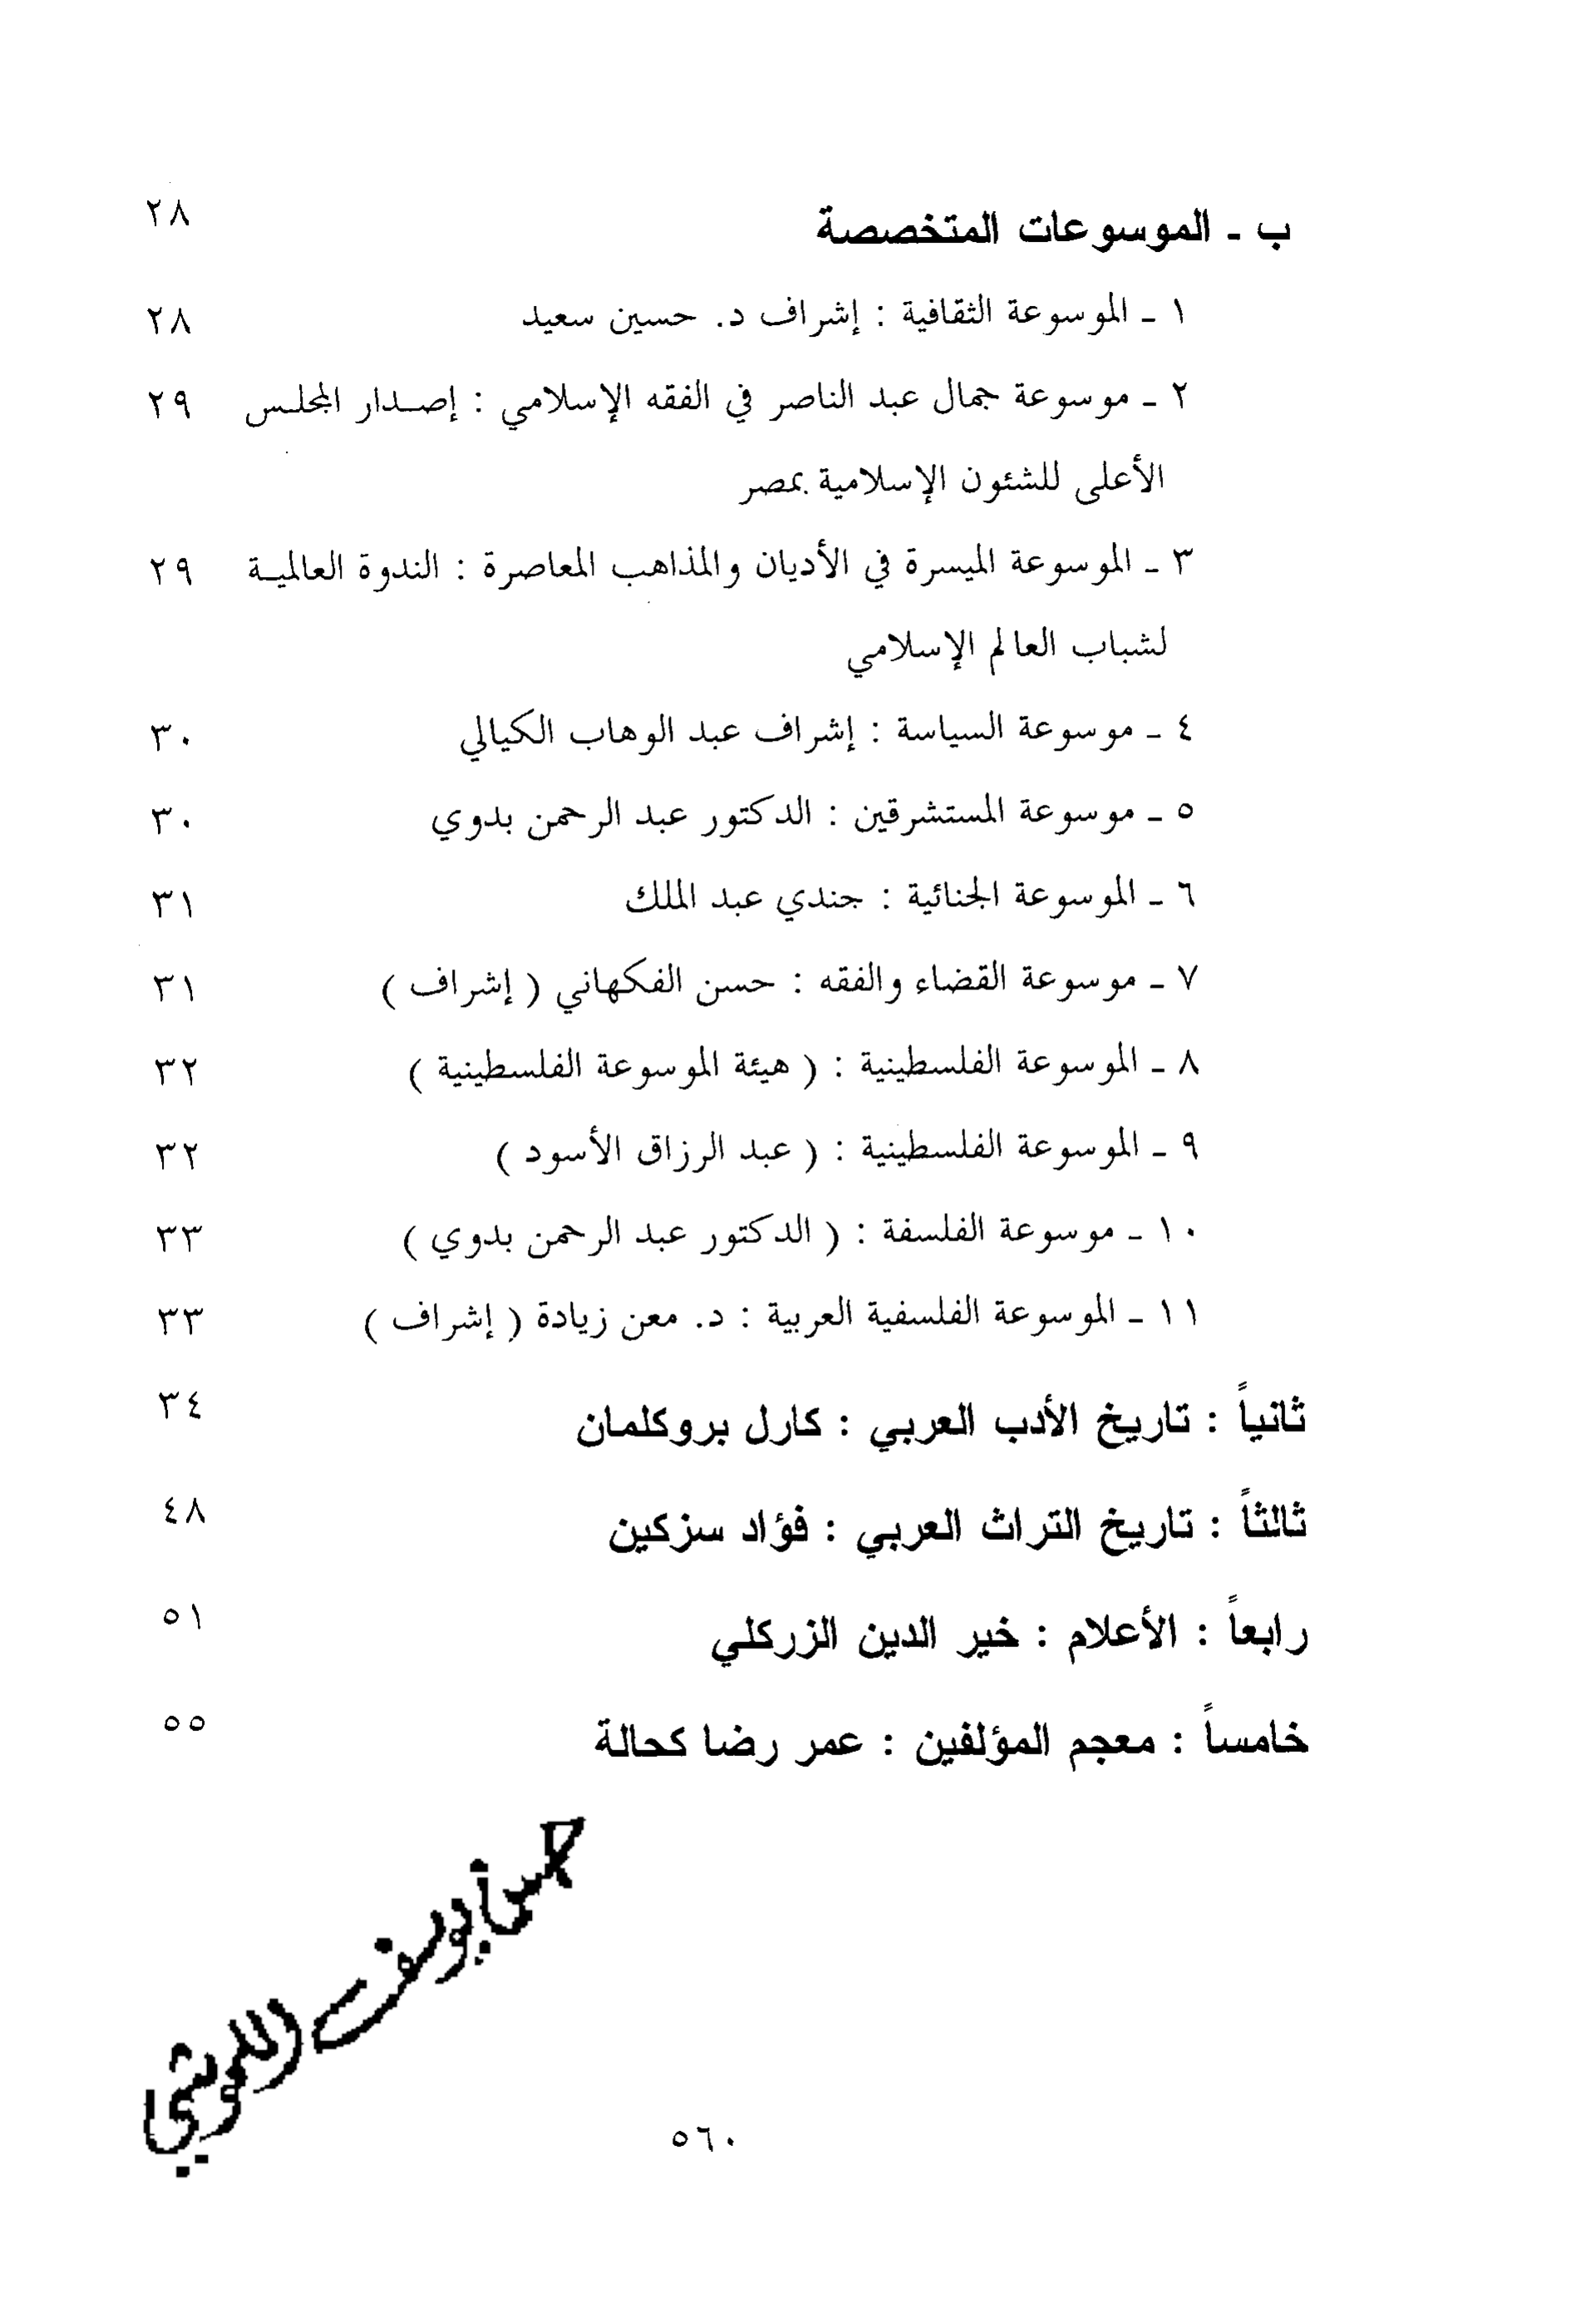 ب ـ الموسوعات المتخصصة ٢٨
١ ـ الموسوعة الثقافية : إشراف د. حسين سعيد ٢٨
٢ ـ موسوعة جمال عبد الناصر في الفقه الإسلامي : إصدار المجلس ٢٩
الأعلى للشئون الإسلامية بمصر
٣ ـ الموسوعة الميسرة في الأديان والمذاهب المعاصرة : الندوة العالمية ٢٩
لشباب العالم الإسلامي
٤ ـ موسوعة السياسة : إشراف عبد الوهاب الكيالي ٣٠
٥ ـ موسوعة المستشرقين : الدكتور عبد الرحمن بدوي ٣٠
٦ ـ الموسوعة الجنائية : جندي عبد الملك ٣١
٧ ـ موسوعة القضاء والفقه : حسن الفكهاني ( إشراف ) ٣١
٨ ـ الموسوعة الفلسطينية : ( هيئة الموسوعة الفلسطينية ) ٣٢
٩ ـ الموسوعة الفلسطينية : ( عبد الرزاق الأسود ) ٣٢
١٠ ـ موسوعة الفلسفة : ( الدكتور عبد الرحمن بدوي ) ٣٣
١١ ـ الموسوعة الفلسفية العربية : د. معن زيادة ( إشراف ) ٣٣
ثانياً : تاريخ الأدب العربي : كارل بروكلمان ٣٤
ثالثاً : تاريخ التراث العربي : فؤاد سزكين ٤٨
رابعاً : الأعلام : خير الدين الزركلي ٥١
خامساً : معجم المؤلفين : عمر رضا كحالة ٥٥
٥٦٠